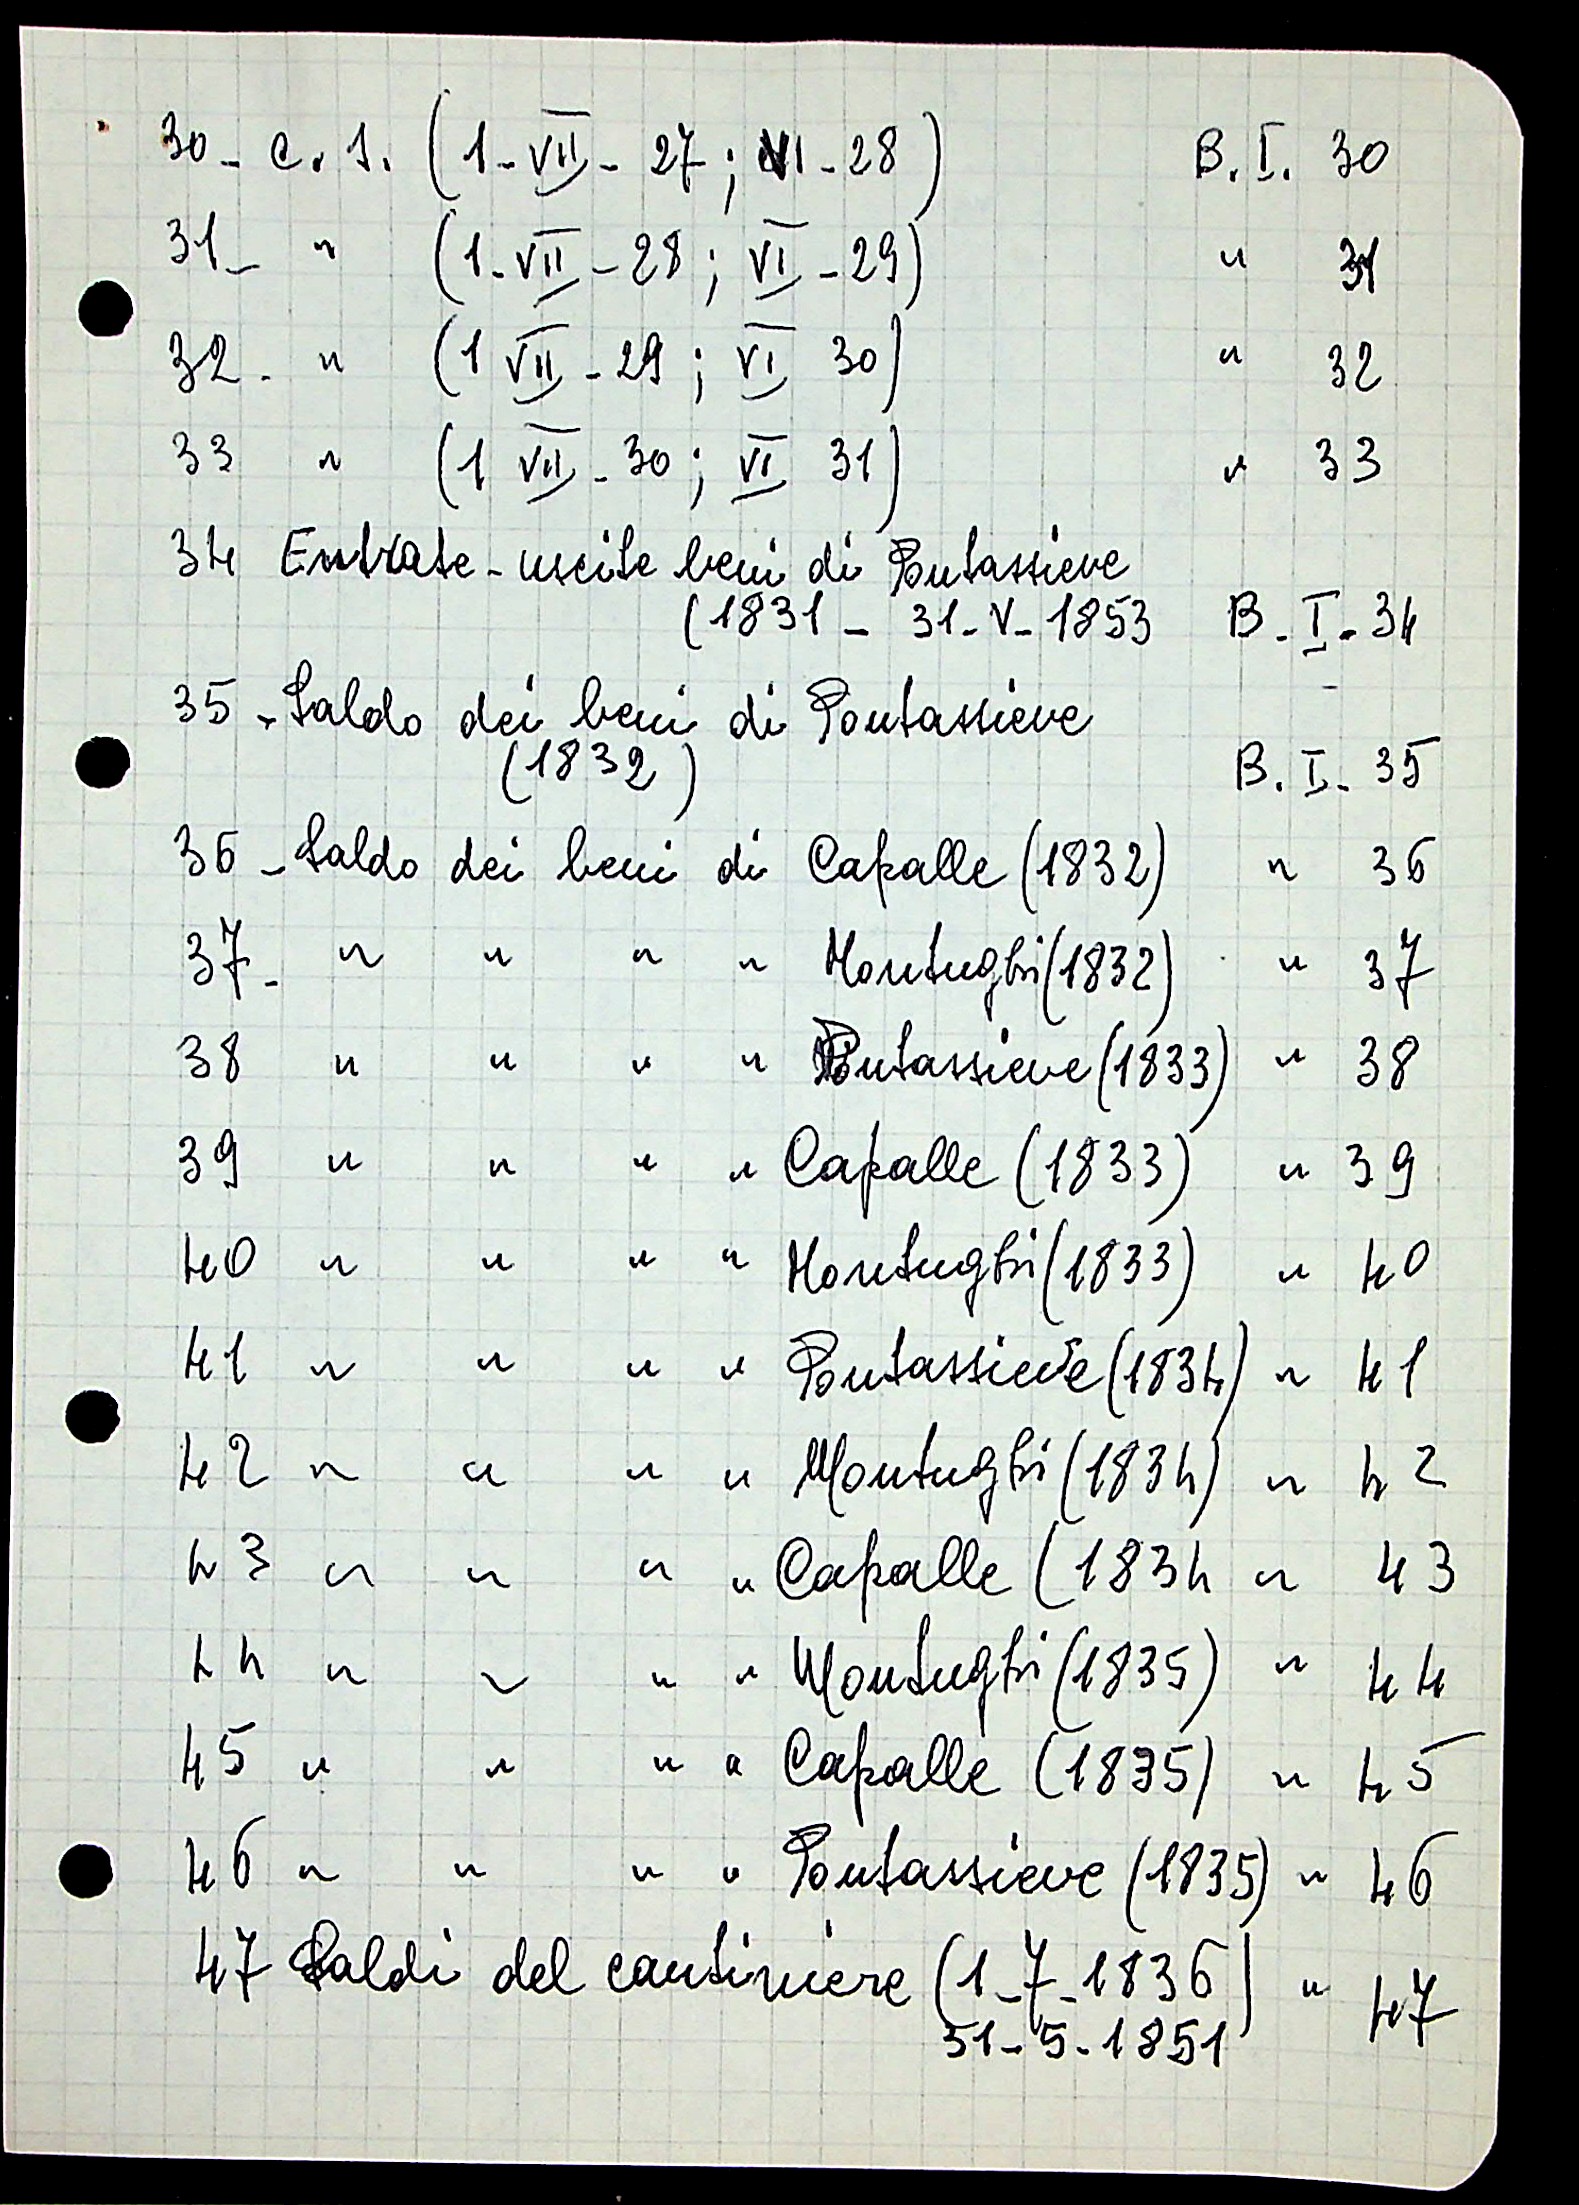 30 - c. s. (1 - VII - 27 ; VI - 28) B. I. 30
31 - " (1 - VII - 28 ; VI - 29) " 31
32 - " (1 VII - 29 ; VI 30) " 32
33 " (1 VII - 30 ; VI 31) " 33
34 Entrate - uscite beni di Pontassieve
(1831 - 31 - V - 1853 B. I. 34
35 - Saldo dei beni di Pontassieve
(1832) B. I. 35
36 - Saldo dei beni di Capalle (1832) " 36
37 - " " " " Montughi (1832) " 37
38 " " " " Pontassieve (1833) " 38
39 " " " " Capalle (1833) " 39
40 " " " " Montughi (1833) " 40
41 " " " " Pontassieve (1834) " 41
42 " " " " Montughi (1834) " 42
43 " " " " Capalle (1834 " 43
44 " " " " Montughi (1835) " 44
45 " " " " Capalle (1835) " 45
46 " " " " Pontassieve (1835) " 46
47 Saldi del cantiniere (1 - 7 - 1836) " 47
31 - 5 - 1851